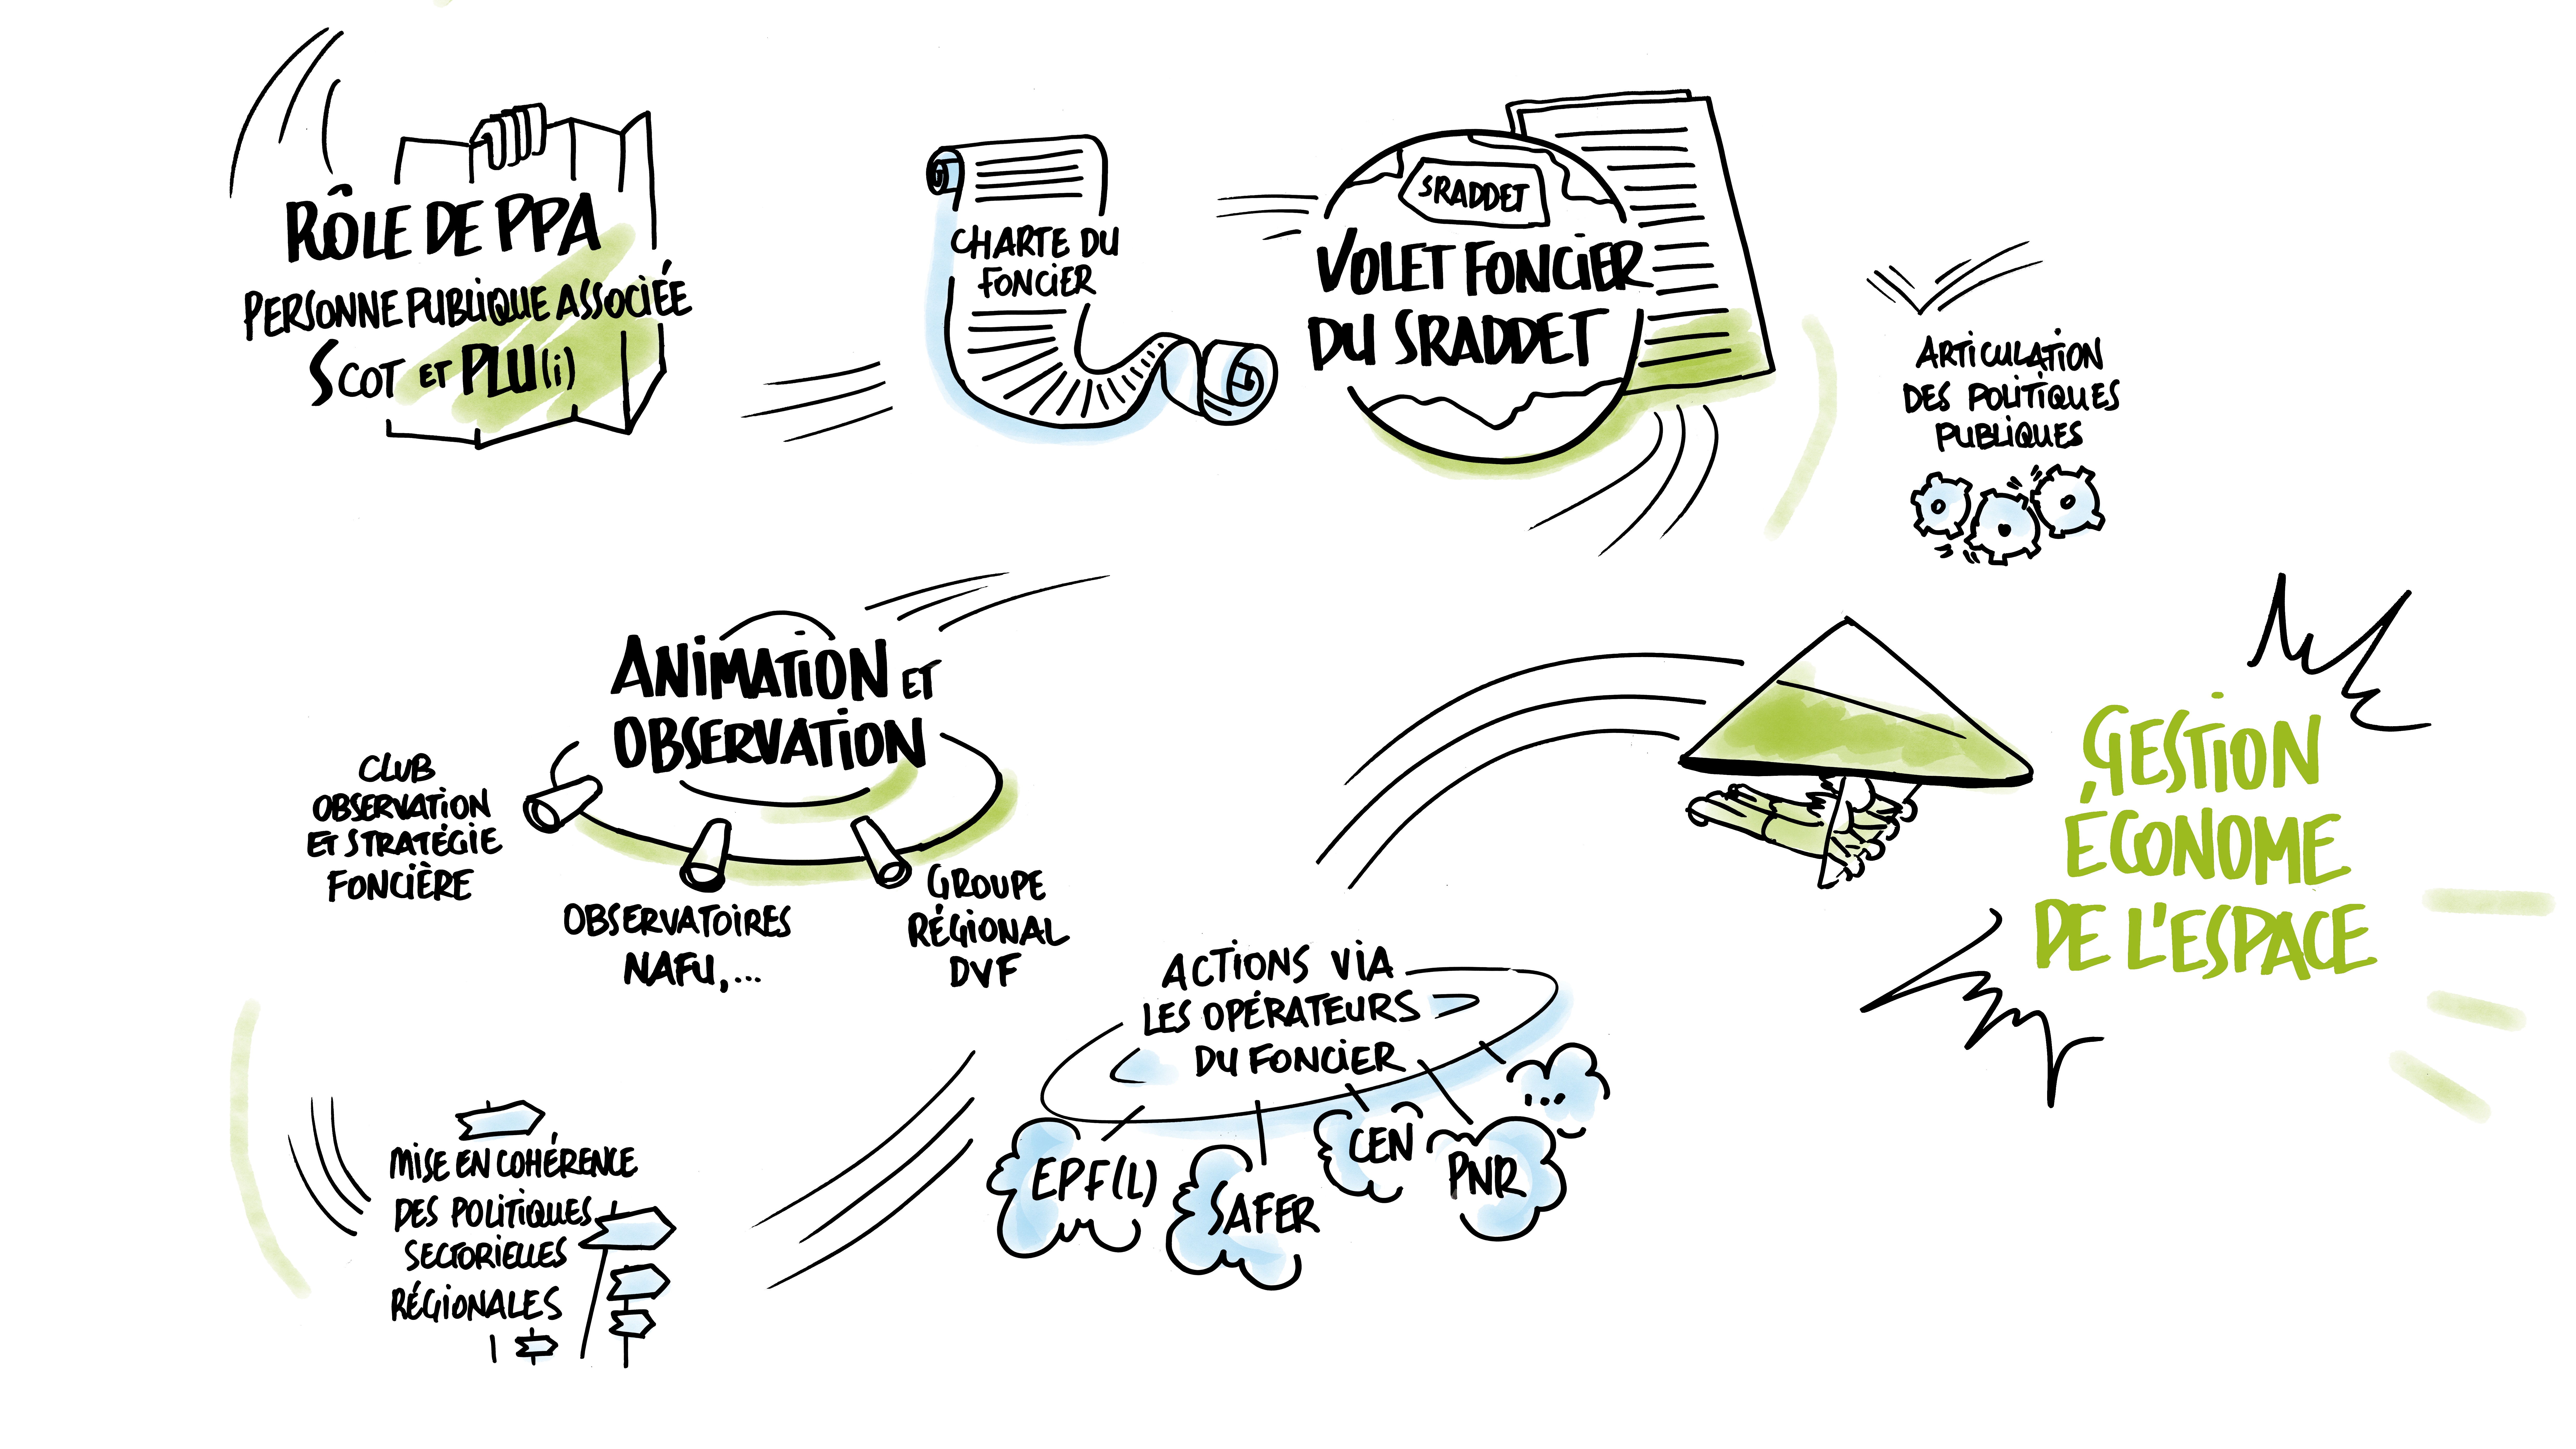 RÔLE DE PPA
PERSONNE PUBLIQUE ASSOCIÉE
SCOT ET PLU(i)
CHARTE DU
FONCIER
SRADDET
VOLET FONCIER
DU SRADDET
ARTICULATION
DES POLITIQUES
PUBLIQUES
ANIMATION ET
OBSERVATION
CLUB
OBSERVATION
ET STRATÉGIE
FONCIÈRE
OBSERVATOIRES
NAFU,...
GROUPE
RÉGIONAL
DVF
GESTION
ÉCONOME
DE L'ESPACE
ACTIONS VIA
LES OPÉRATEURS
DU FONCIER
EPF(L)
SAFER
CEN
PNR
...
MISE EN COHÉRENCE
DES POLITIQUES
SECTORIELLES
RÉGIONALES